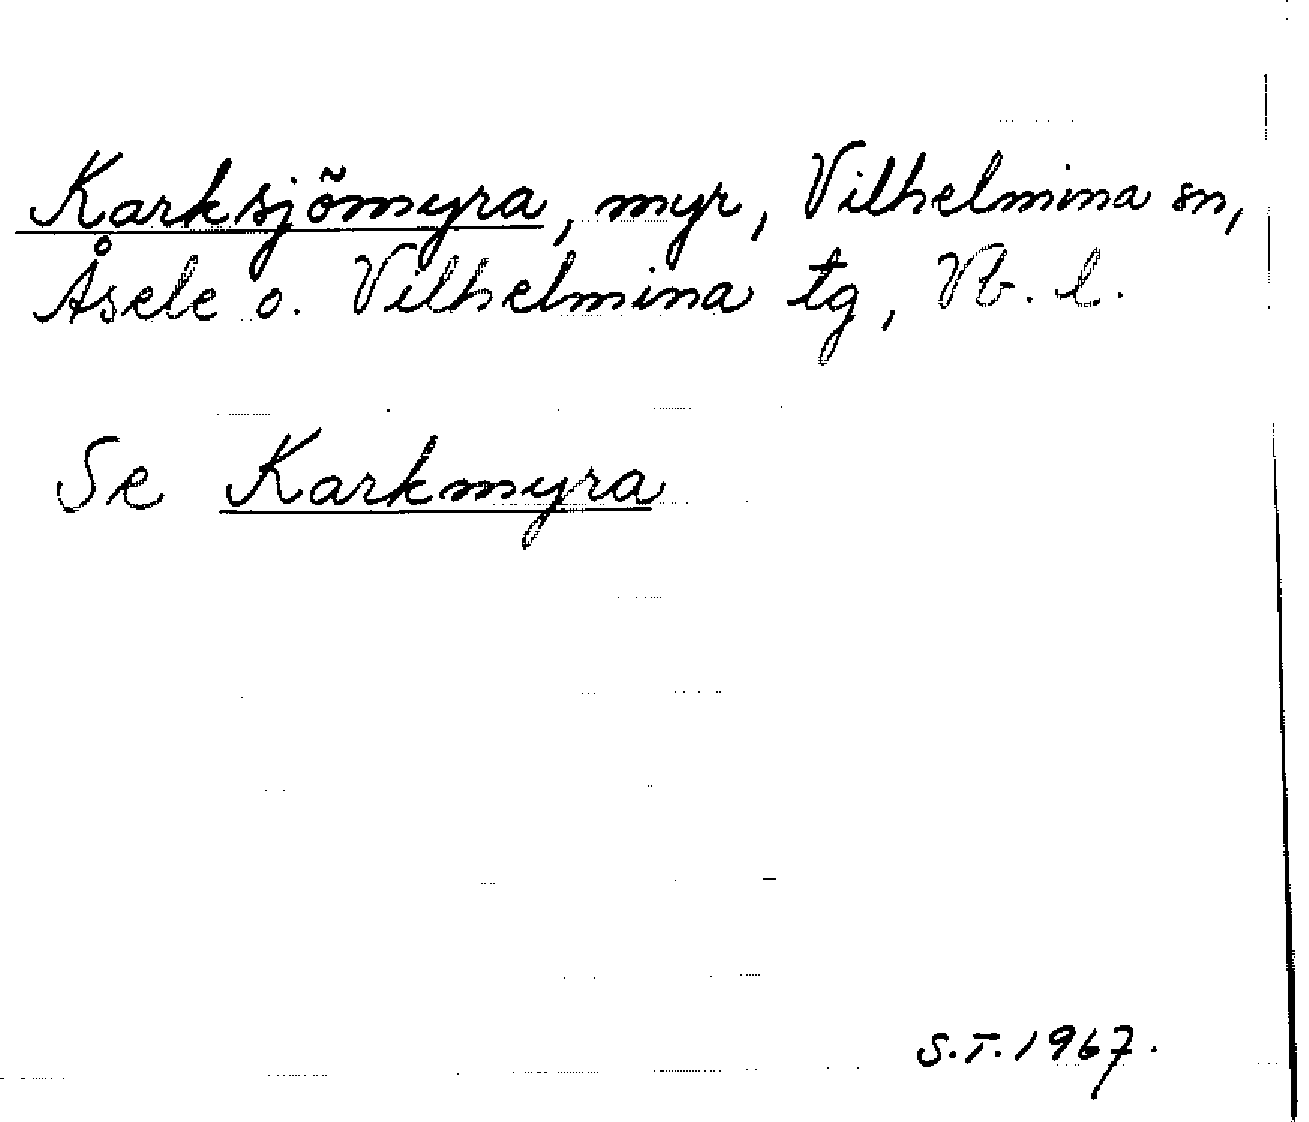 Karksjömyra, myr, Vilhelmina sn,
Åsele o. Vilhelmina tg, Vb. l.
Se Karkmyra
S.T. 1967.